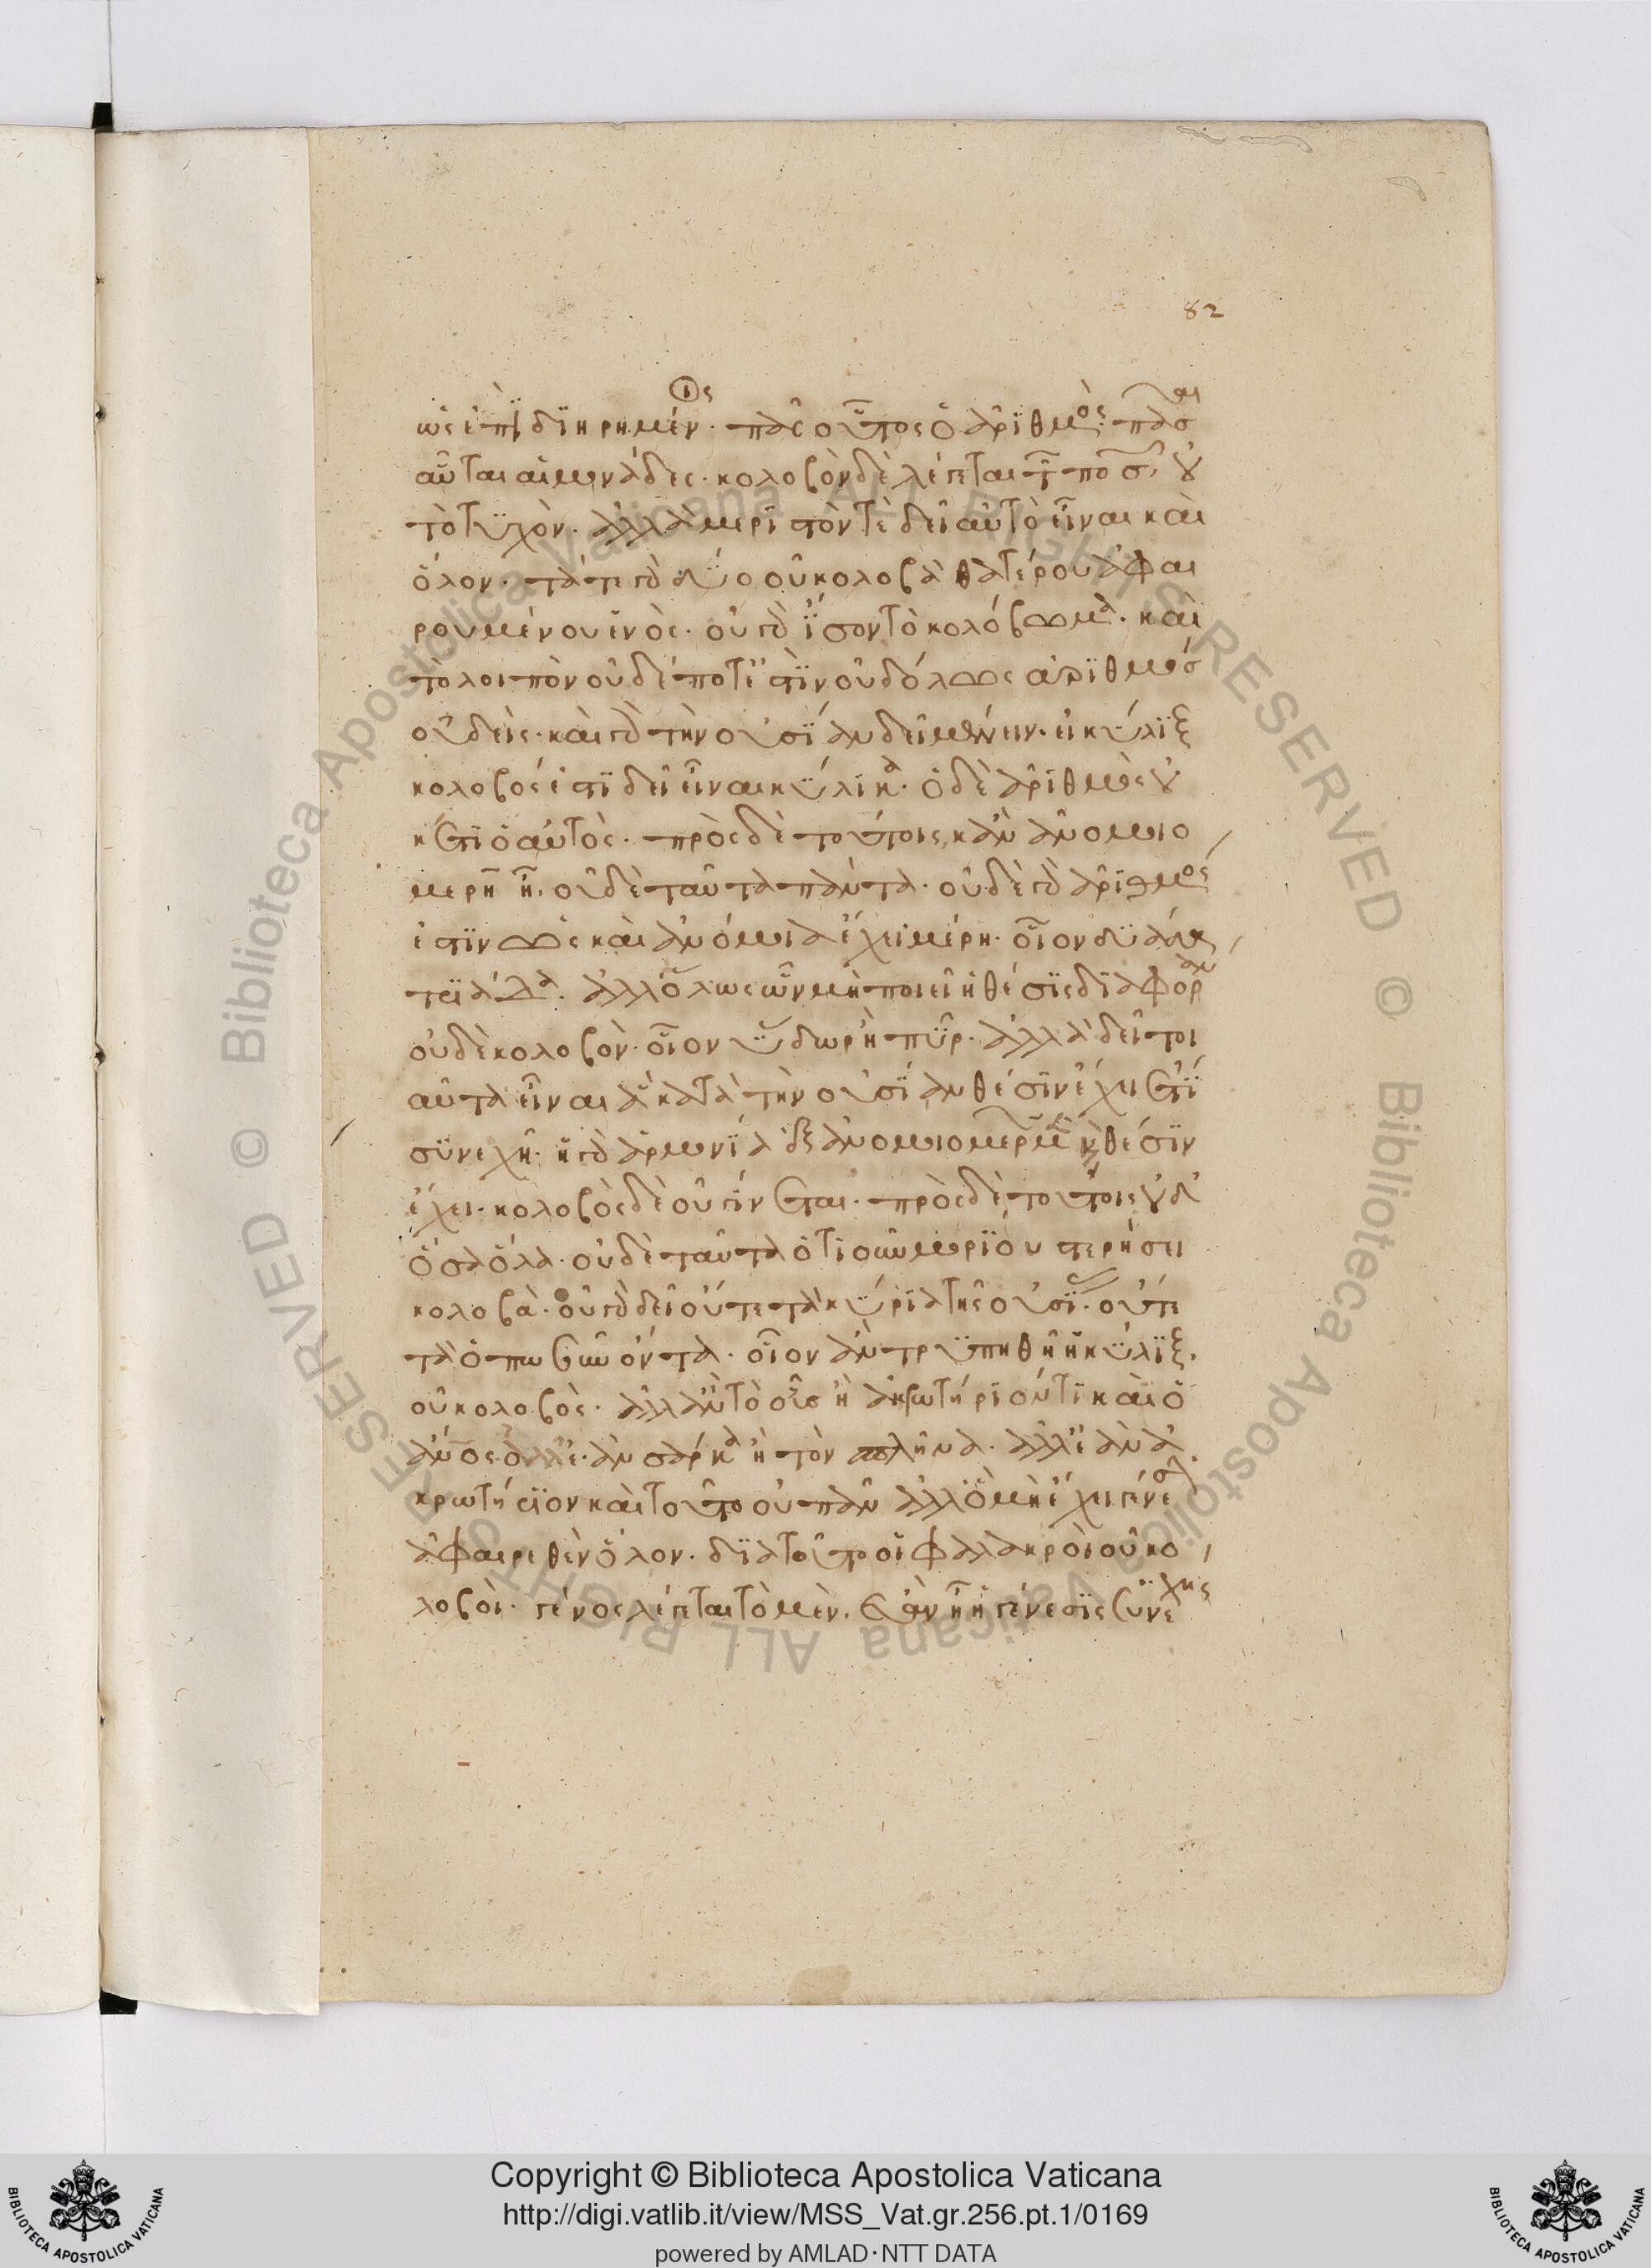 82
ὡς ἐπὶ διηρημέναις. πᾶς οὗτος ὁ ἀριθμὸς. πᾶσαι
αὗται αἱ μονάδες. κολοβὸν δὲ λέγεται τῶν ποσῶν οὐ
τὸ τυχὸν. ἀλλὰ μεριστὸν τὲ δεῖ αὐτὸ εἶναι καὶ
ὅλον. τά τε γὰρ δύο οὐ κολοβὰ θατέρου ἀφαι
ρουμένου ἑνὸς. οὐ γὰρ ἴσον τὸ κολόβωμα. καὶ
τὸ λοιπὸν οὐδέποτ' ἐστὶν οὐδ' ὅλως ἀριθμὸς
οὐδεὶς. καὶ γὰρ τὴν οὐσίαν δεῖ μένειν. εἰ κύλιξ
κολοβός ἔτι δεῖ εἶναι κύλικα. ὁ δὲ ἀριθμὸς οὐ
κέτι ὁ αὐτὸς. πρὸς δὲ τούτοις κἂν ἀνομοιο
μερῆ ἦ. οὐδὲ ταῦτα πάντα. οὐδὲ γὰρ ἀριθμός
ἐστὶν ὡς καὶ ἀνόμοια ἔχει μέρη. οἷον δυάδα
τριάδα. ἀλλ' ὅλως ὧν μὴ ποιεῖ ἡ θέσις διαφορὰν
οὐδὲ κολοβὸν. οἷον ὕδωρ ἢ πῦρ. ἀλλὰ δεῖ τοι
αῦτα εἶναι ἃ κατὰ τὴν οὐσίαν θέσιν ἔχει ἔτι
συνεχῆ. ἡ γὰρ ἁρμονία ἐξ ἀνομοιομερῶν μὲν καὶ θέσιν
ἔχει. κολοβὸς δὲ οὐ γίνεται. πρὸς δὲ τούτοις οὐδ'
ὅσα ὅλα. οὐδὲ ταῦτα ὁτιοῦν μορίου στερήσει
κολοβὰ. οὐ γὰρ δεῖ οὔτε τὰ κύρια τῆς οὐσίας. οὔτε
τὰ ὁπωσοῦν ὄντα. οἷον ἂν τρυπηθῆ ἡ κύλιξ.
οὐ κολοβὸς. ἀλλ' ἂν τὸ οὖς ἢ ἀκρωτήριόν τι καὶ ὁ
ἄνος ἐὰν σάρκα ἢ τὸν σπλῆνα. ἀλλ' ἐὰν ἀ
κρωτήριον καὶ τοῦτο οὐ πᾶν ἀλλ' ὃ μὴ ἔχει γένεσιν
ἀφαιρεθὲν ὅλον. διὰ τοῦτο οἱ φαλακροὶ οὐ κο
λοβοὶ. γένος λέγεται τὸ μὲν. ἐὰν ἦ ἡ γένεσις συνεχὴς
Copyright © Biblioteca Apostolica Vaticana
http://digi.vatlib.it/view/MSS_Vat.gr.256.pt.1/0169
powered by AMLAD·NTT DATA